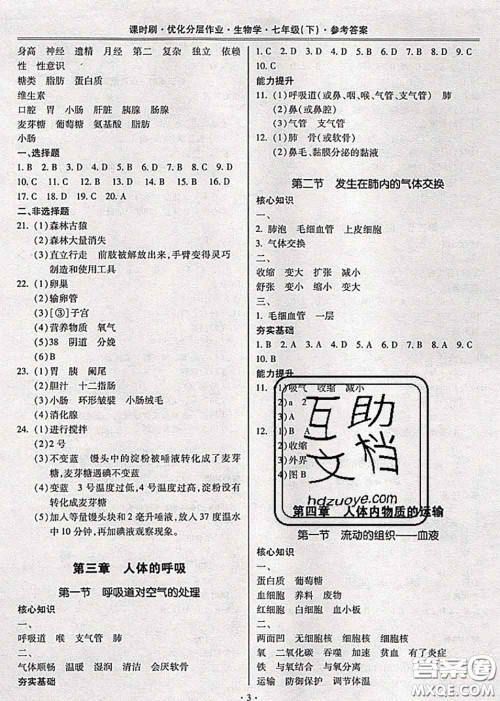 课时刷·优化分层作业·生物学·七年级(下)·参考答案
身高 神经 遗精 月经 第二 复杂 独立 依赖
性 性意识
糖类 脂肪 蛋白质
维生素
口腔 胃 小肠 肝脏 胰腺 肠腺
麦芽糖 葡萄糖 氨基酸 脂肪
小肠
一、选择题
1. B 2. D 3. D 4. D 5. C 6. D 7. C 8. C 9. D
10. C 11. D 12. C 13. D 14. D 15. C 16. D
17. C 18. D 19. C 20. A
二、非选择题
21. (1)森林古猿
(2)森林大量消失
(3)直立行走 前肢被解放出来,手臂变得灵巧
制造和使用工具
22. (1)卵巢
(2)输卵管
(3)[③]子宫
(4)营养物质 氧气
(5)38 阴道 分娩
(6)B
23. (1)胃 胰 阑尾
(2)胆汁 十二指肠
(3)小肠 环形皱襞 小肠绒毛
(4)消化腺
24. (1)进行搅拌
(2)2号
(3)不变蓝 馒头中的淀粉被唾液转化成了麦芽
糖,麦芽糖遇碘不变蓝
(4)变蓝 3号温度过低,4号温度过高,淀粉没有
转化成麦芽糖
(5)加入等量馒头和2毫升唾液,放入37度温水
中10分钟,再加碘液观察现象。
第三章 人体的呼吸
第一节 呼吸道对空气的处理
核心知识
一、
呼吸道 喉 支气管 肺
二、
气体顺畅 温暖 湿润 清洁 会厌软骨
夯实基础
10. C
能力提升
11. (1)呼吸道(或鼻、咽、喉、气管、支气管) 肺
(2)鼻(或鼻腔)
(3)气管 支气管
12. (1)肺 骨(或软骨)
(2)鼻毛、黏膜分泌的黏液
第二节 发生在肺内的气体交换
核心知识
一、
2. 肺泡 毛细血管 上皮细胞
3. 气体交换
二、
收缩 变大 扩张 减小
舒张 变小 缩小 增大
三、
1. 毛细血管 一层
夯实基础
1. B 2. A 3. A 4. D 5. B 6. D 7. B 8. A 9. C
10. B
能力提升
11. (1)吸气 收缩 减小
(2)a 2
12. (1)B A
(2)收缩
(3)外界
(4)图B
互助文档
hdzuoye.com
第四章 人体内物质的运输
第一节 流动的组织——血液
核心知识
一、
蛋白质 葡萄糖
血细胞 养料 废物
红细胞 白细胞 血小板
二、
两面凹 无细胞核 细胞核
氧 二氧化碳 吞噬 增加 有了炎症
铁 与氧结合 与氧分离
运输 防御保护 调节体温
·3·
答案圈
MXQE.COM